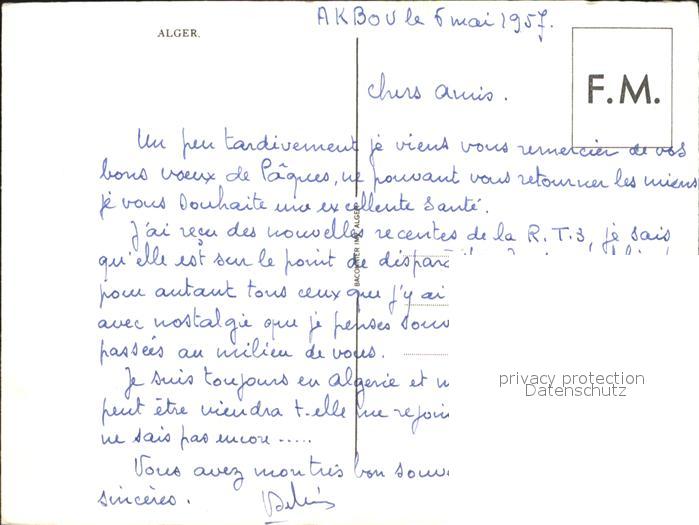 AKBOU le 6 mai 1957.
ALGER.
F.M.
chers amis.
Un peu tardivement je viens vous remercier de vos
bons voeux de Pâques, ne pouvant vous retourner les miens
je vous souhaite une excellente santé.
J'ai reçu des nouvelles recentes de la R.T.3, je sais
qu'elle est sur le point de dispar
pour autant tous ceux que j'y ai
avec nostalgie que je penses souv
passées au milieu de vous.
Je suis toujours en Algerie et
peut être viendra t-elle me rejoin
ne sais pas encore .....
Vous avez mon très bon souv
sincères.
BACONNIER IMP. ALGER
privacy protection
Datenschutz